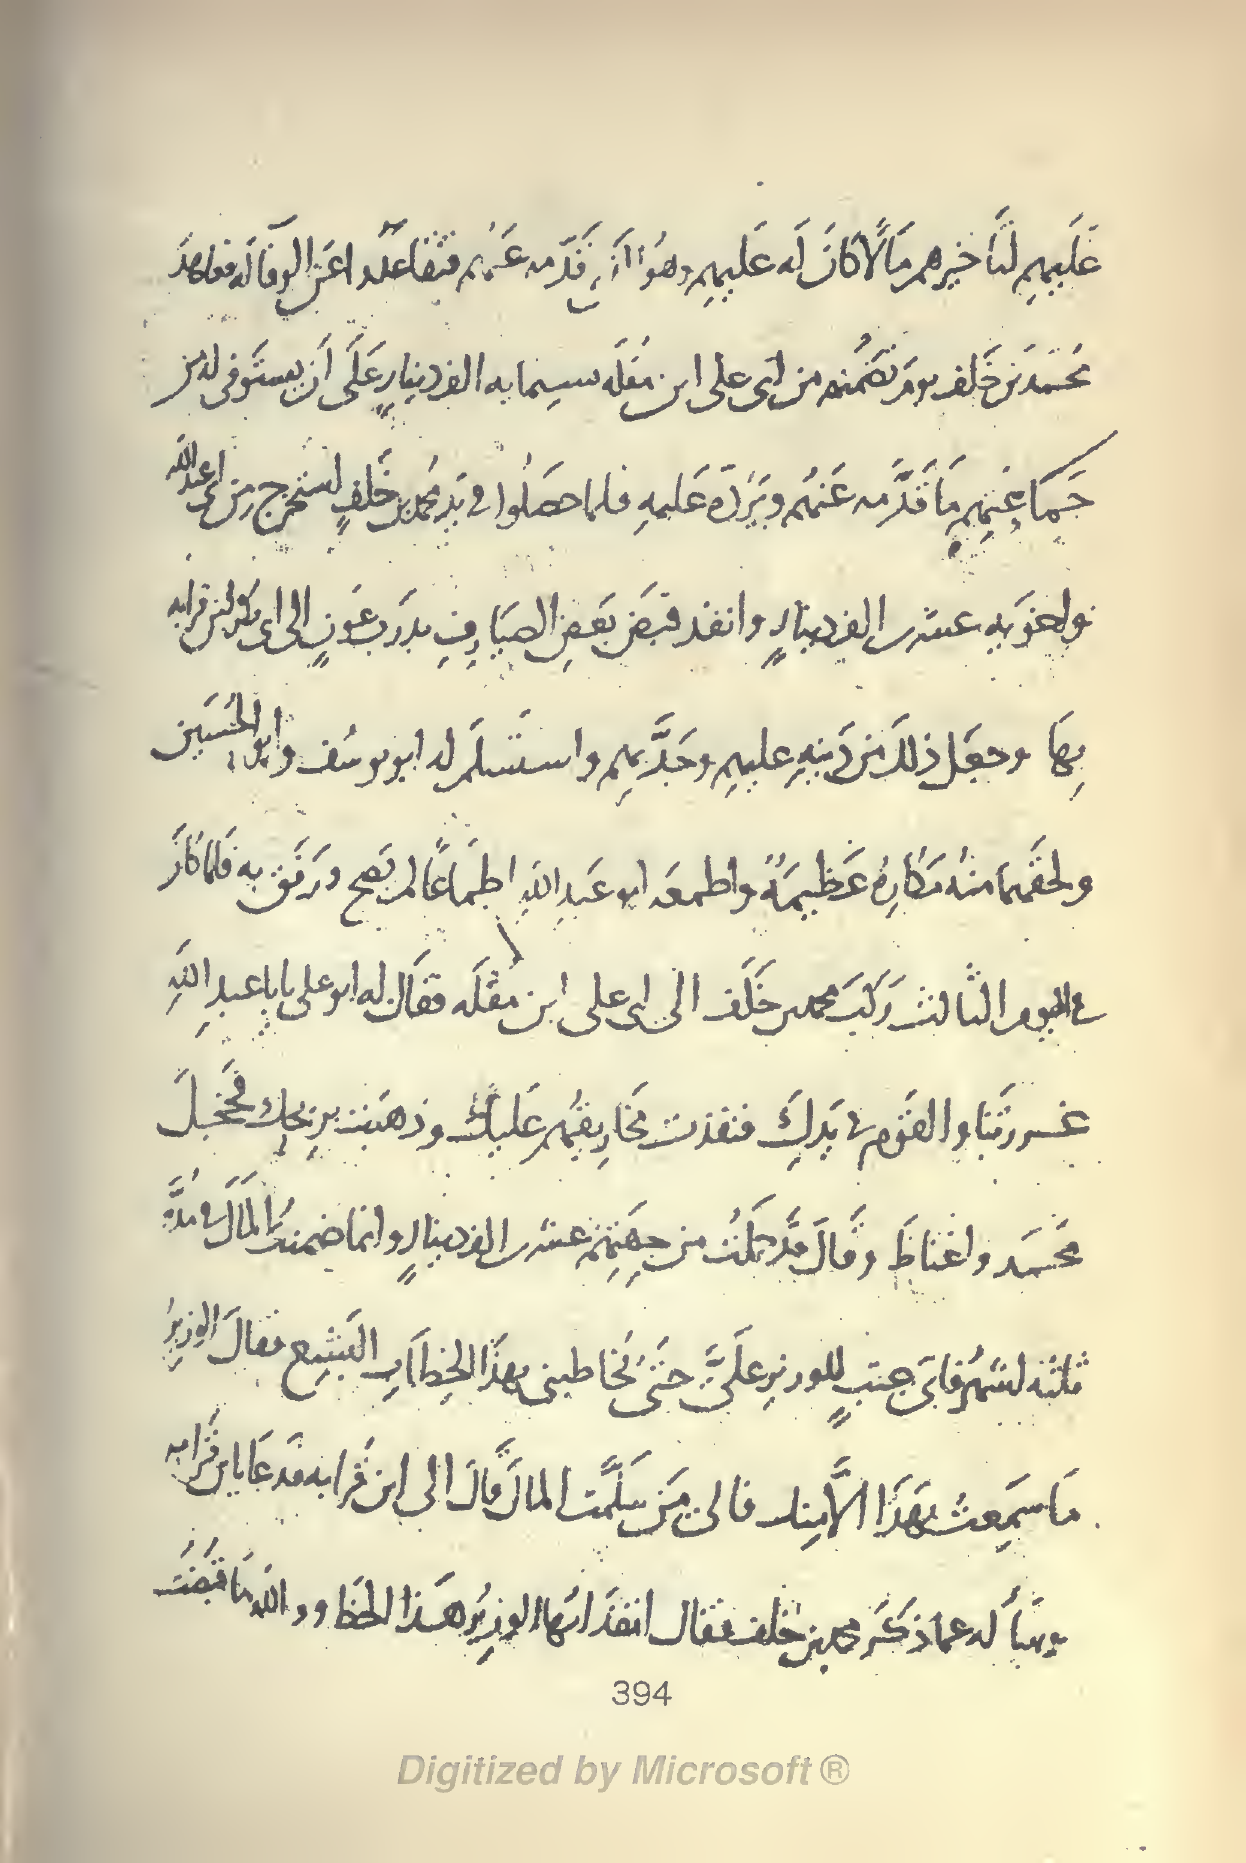 عَلَيهِم لتَأخيرهم مَالًا كانَ لَه عَلَيهِم وهُو قَدّمه عَنهُم فتقاعدوا عَن الوفا له
مُحَمَّد بن خَلَف يوم تضمنهم من ابى على ابن مُقلَه سبعمايه الف دينارٍ عَلَى أن يستَوفى له من
جهَاتِهِم مَا قَدَّمه عَنهُم ويَردّه عَليهِ فلما حصَلُوا فى يَدِ محمد بن خَلفٍ استخرج مِن ابى عبد الله
نو لحو يه عشرين الف دينارٍ وانفذ قبَض بَعضِ الصيَارِفِ بدَرب عَونٍ الى ابى بكر بن قرابه
بِهَا وجعَل ذلكَ من دَينِهِ عليهِم وجَدَّ بهِم واستَسلَم له ابو يوسُف وابو الحُسَين
ولحقَهمَا منهُ مَكَارِهُ عَظيمَةٌ واطمعَه ابو عَبدِ اللهِ اطمَاعًا لم يَصِح ورَفَق به فلما كانَ
فى اليوم الثالث رَكبَ محمد بن خَلَف الى ابى على ابن مُقلَه فقَال له ابو على يابا عبدِ اللهِ
غررتَنا والقَوم فى يَدِكَ فنفذت مخَارِيقُهم عَليك وذهَبت برِيحك فخَجِلَ
مُحَمد واغتاظَ وقالَ قد حمَلتُ من جِهَتِهِم عشرين الف دينارٍ وانما ضمنتُ المَالَ فى مُدَّة
ثلثة اشهُر فاىّ عتبٍ للوزير علَىَّ حتىّ يُخاطبنى بهذَا الخِطابِ البَشِيعِ فقالَ الوزيرُ
مَا سَمِعتُ بهَذَا الَّا مِنك فالى مَن سَلَّمت المالَ قالَ الى ابن قُرابه فدعَا بابن قُرابه
وسَأله عما ذكَر محمد بن خلف فقال انفذ ايّها الوزيرُ هَذا الخط ووالله مَا قبَضتُ
394
Digitized by Microsoft ®